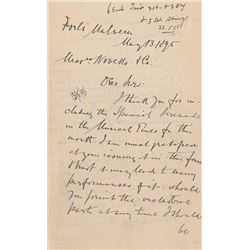 Forli Malvern
May 13 1895
Messrs Novello & Co.
Dear Sirs:
I thank you for in-
cluding the Spanish Serenade
in the Musical Times for this
month. I am much gratified
at you issuing it in this form
& trust it may lead to many
performances of it: should
you print the orchestral
parts at any time I should
be